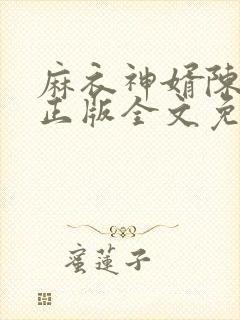 麻衣神婿陈
正版全文免
蜜莲子